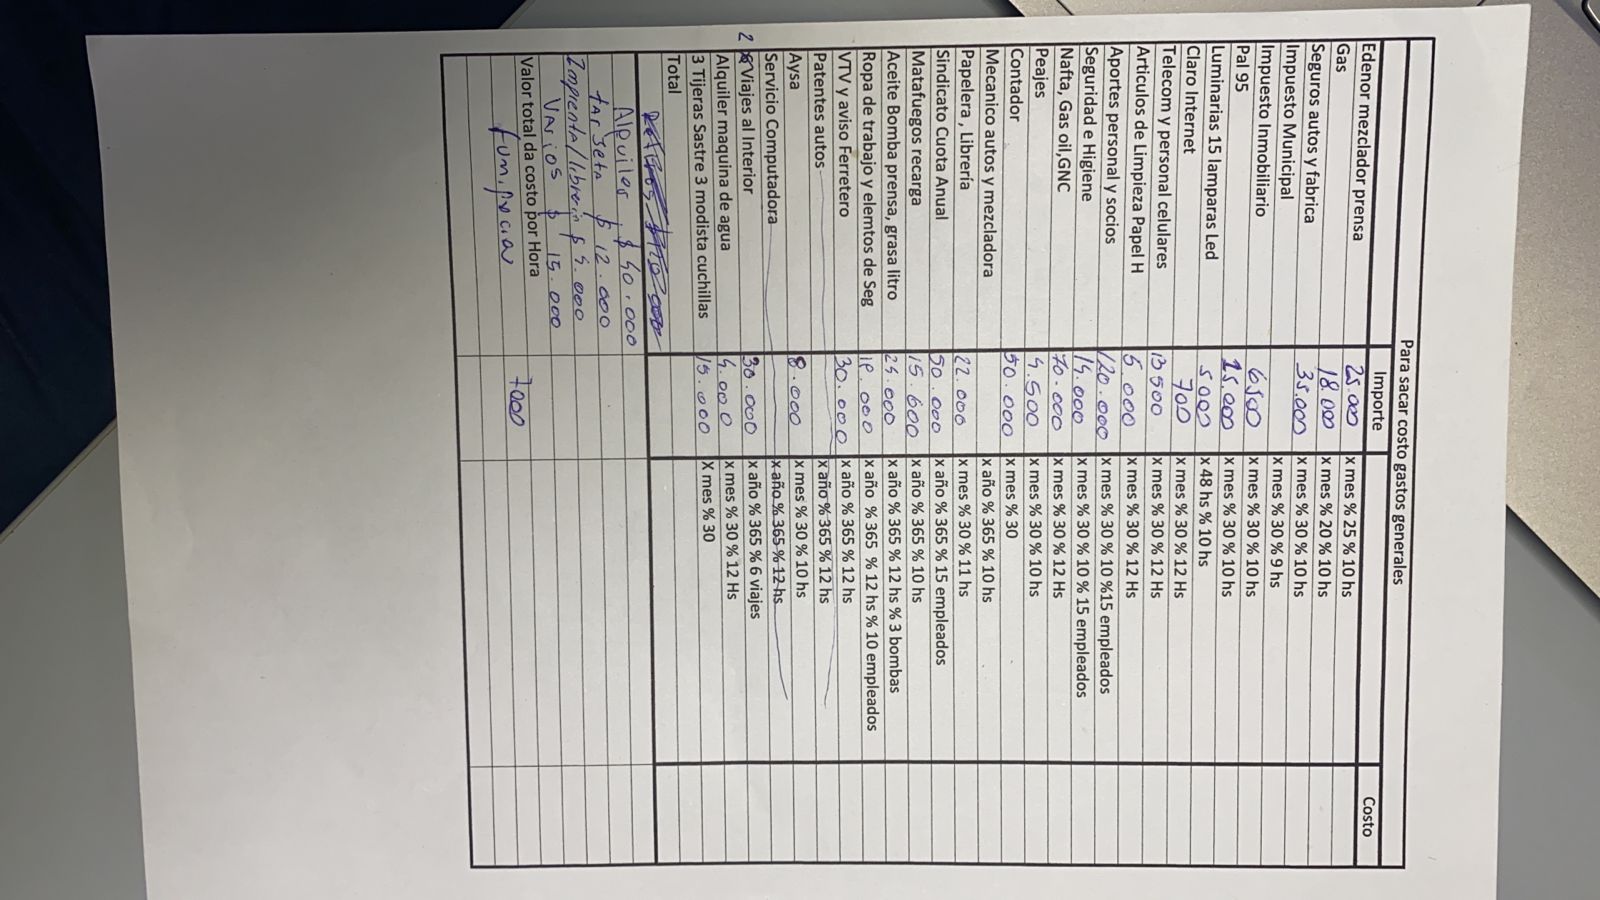 Para sacar costo gastos generales
Importe Costo
Edenor mezclador prensa 25.000 x mes % 25 % 10 hs
Gas 18.000 x mes % 20 % 10 hs
Seguros autos y fabrica 35.000 x mes % 30 % 10 hs
Impuesto Municipal x mes % 30 % 9 hs
Impuesto Inmobiliario 6500 x mes % 30 % 10 hs
Pal 95 15.000 x mes % 30 % 10 hs
Luminarias 15 lamparas Led 5000 x 48 hs % 10 hs
Claro Internet 700 x mes % 30 % 12 Hs
Telecom y personal celulares 13500 x mes % 30 % 12 Hs
Articulos de Limpieza Papel H 5.000 x mes % 30 % 12 Hs
Aportes personal y socios 120.000 x mes % 30 % 10 %15 empleados
Seguridad e Higiene x mes % 30 % 10 % 15 empleados
Nafta, Gas oil,GNC 70.000 x mes % 30 % 12 Hs
Peajes 4.500 x mes % 30 % 10 hs
Contador 50.000 x mes % 30
Mecanico autos y mezcladora x año % 365 % 10 hs
Papelera , Librería 22.000 x mes % 30 % 11 hs
Sindicato Cuota Anual 50.000 x año % 365 % 15 empleados
Matafuegos recarga 15.600 x año % 365 % 10 hs
Aceite Bomba prensa, grasa litro x año % 365 % 12 hs % 3 bombas
Ropa de trabajo y elemtos de Seg x año % 365 % 12 hs % 10 empleados
VTV y aviso Ferretero 30.000 x año % 365 % 12 hs
Patentes autos x año % 365 % 12 hs
Aysa 8.000 x mes % 30 % 10 hs
Servicio Computadora x año % 365 % 12 hs
2 Viajes al Interior 30.000 x año % 365 % 6 viajes
Alquiler maquina de agua 4.000 x mes % 30 % 12 Hs
3 Tijeras Sastre 3 modista cuchillas 15.000 X mes % 30
Total
Alquiler
tarjeta $ 12.000
Imprenta/libreria $ 4.000
Varios $ 15.000
Valor total da costo por Hora
7000